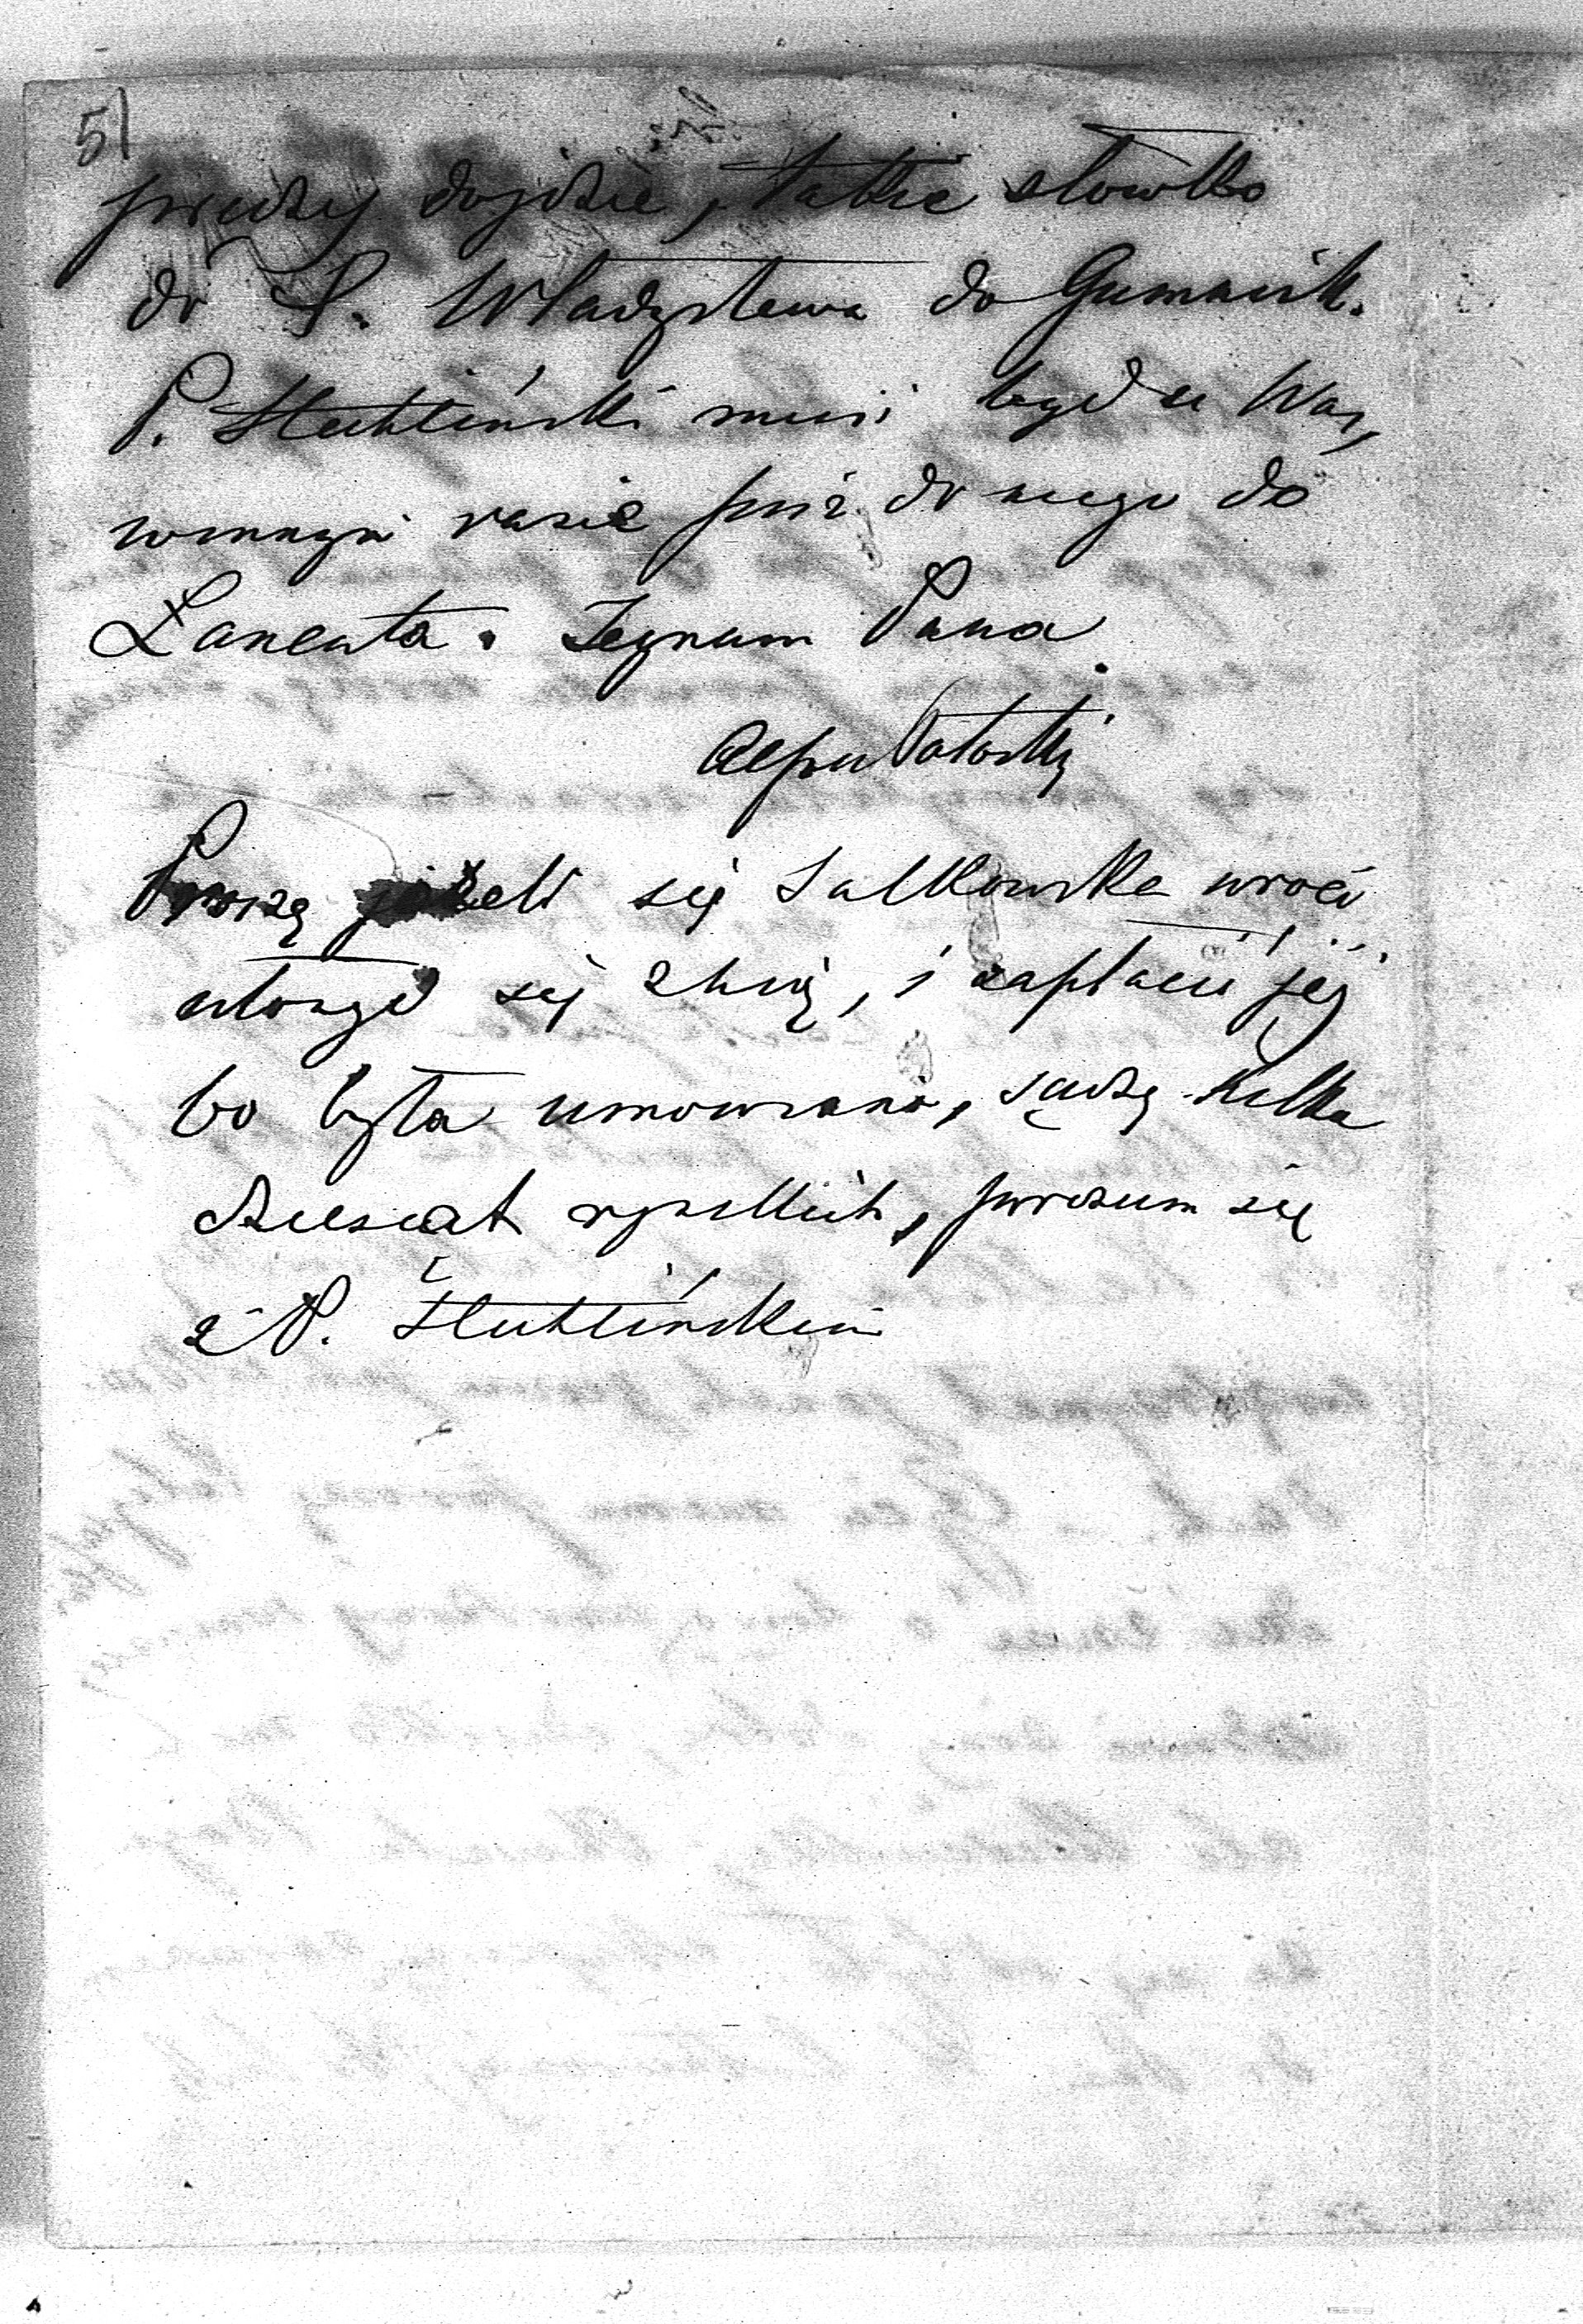 5)
prędzej dojdzie, także słowko
do P. Władysława do Gumnisk.
P. Stehliński musi być u Was,
w innym razie pisz do niego do
Łancuta. Żegnam Pana
Alfred Potocki
Proszę jeżeli się Salkowska wróci
ułożyć się z nią, i zapłacić jej
bo była umowiona, sądzę kilka
dziesiąt ryńskich, porozum się
z P. Stehlińskim